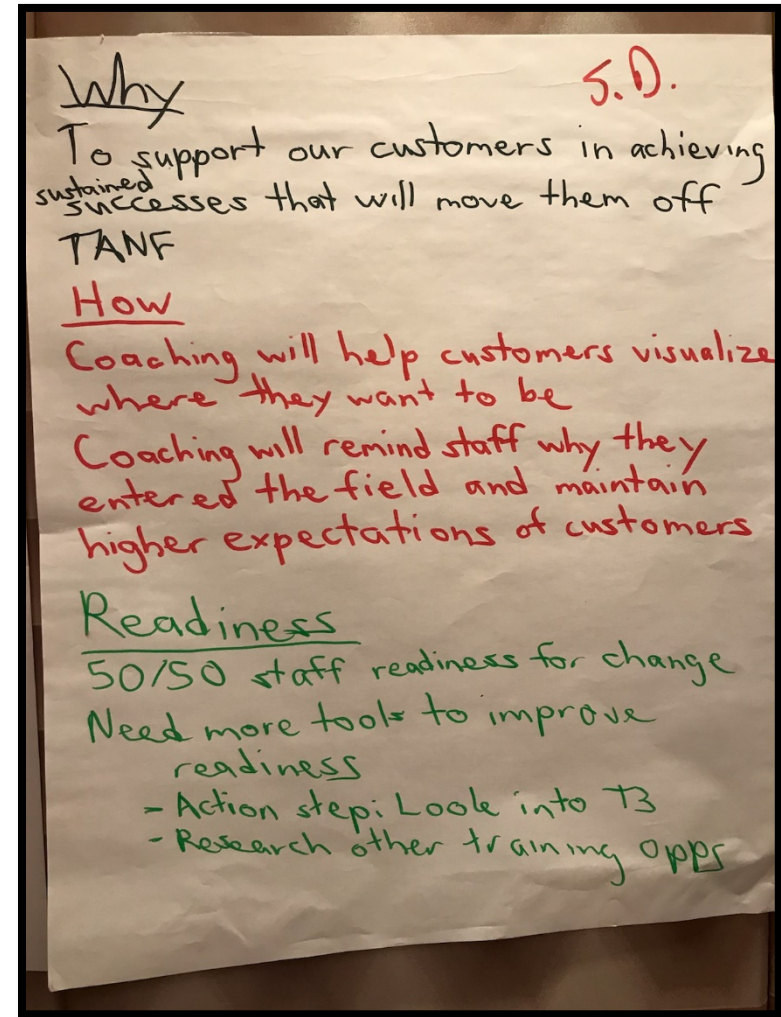 Why
S.D.
To support our customers in achieving
sustained
successes that will move them off
TANF
How
Coaching will help customers visualize
where they want to be
Coaching will remind staff why they
entered the field and maintain
higher expectations of customers
Readiness
50/50 staff readiness for change
Need more tools to improve
readiness
- Action step: Look into T3
- Research other training opps